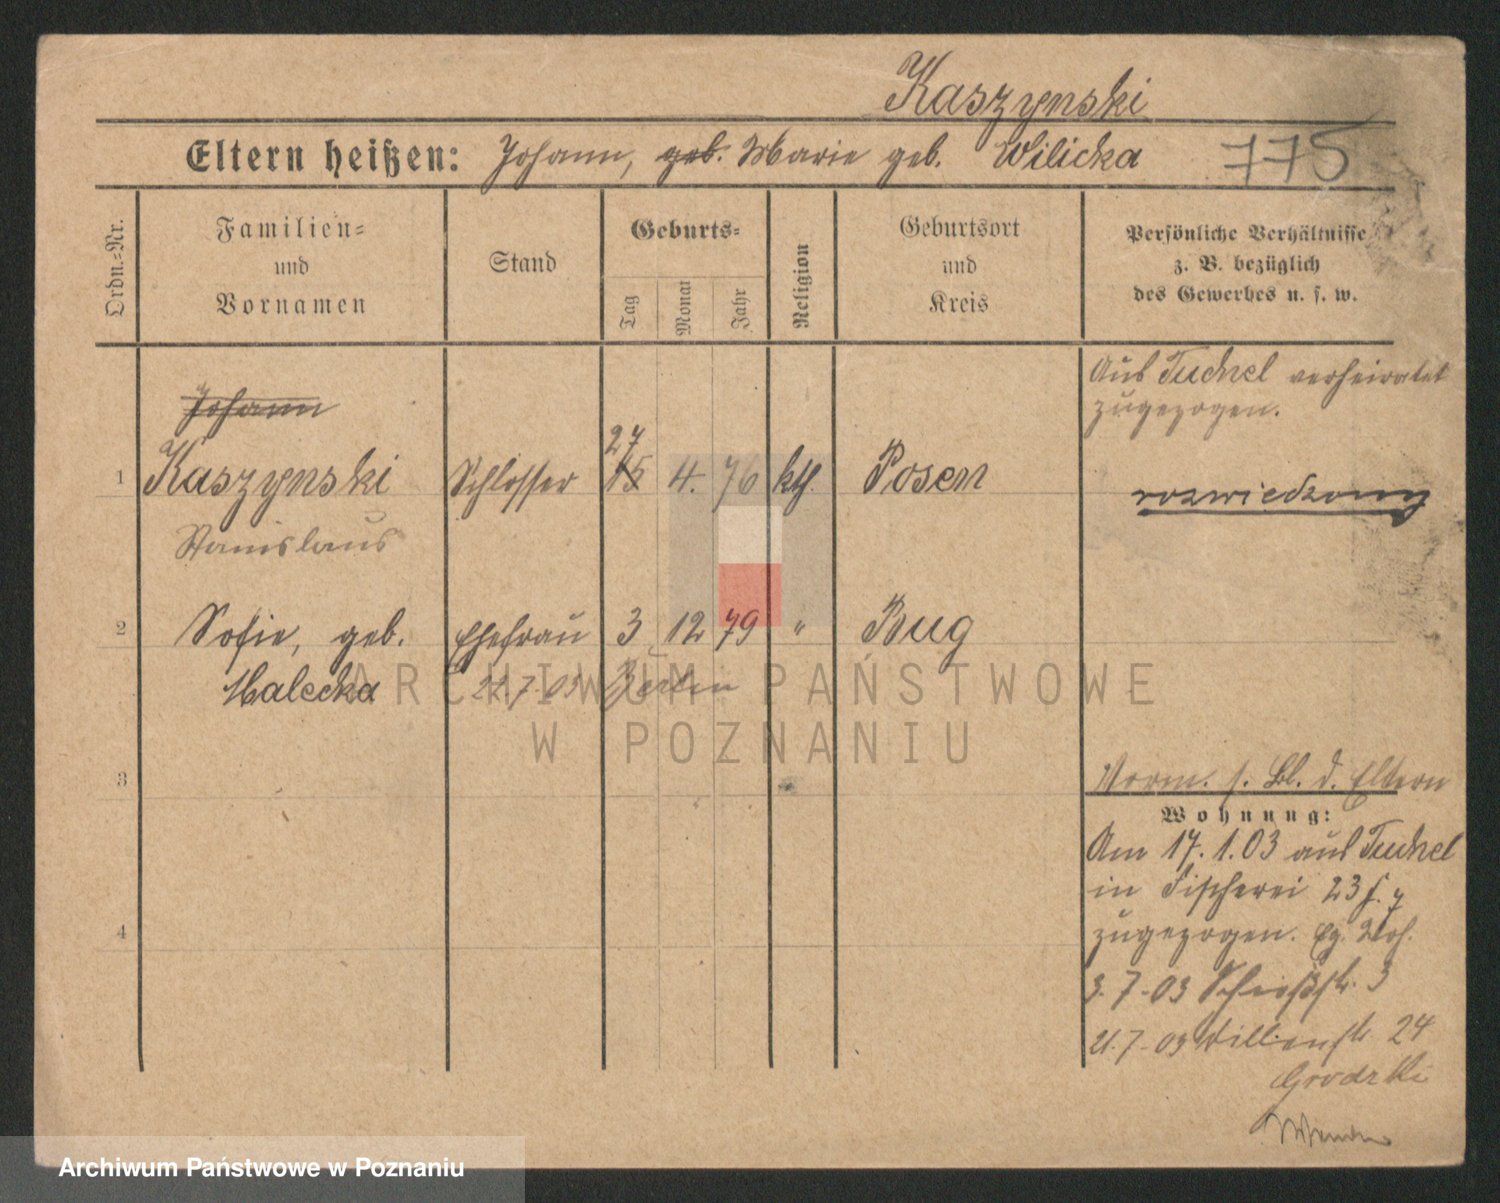 Kaszynski
Eltern heißen: Johann, geb. Marie geb. Wilicka 775
Ordn.-Nr.
Familien-
und
Vornamen
Stand
Geburts-
Tag
Monat
Jahr
Religion
Geburtsort
und
Kreis
Persönliche Verhältnisse
z. B. bezüglich
des Gewerbes u. s. w.
Aus Tuchel verheiratet
zugezogen.
Johann
1 Kaszynski Schlosser 27 15 4. 76 kth. Posen
rozwiedziony
Stanislaus
2 Sofie, geb. Ehefrau 3 12 79 " Bug
Malecka 21.7.03 Berlin
ARCHIWUM PAŃSTWOWE
W POZNANIU
3
Vorm. s. Bl. d. Eltern
Wohnung:
Am 17.1.03 aus Tuchel
in Fischerei 23
4
zugezogen.
3.7.-03 Schießstr. 3
21.7.-03 24
Grodzki
Archiwum Państwowe w Poznaniu